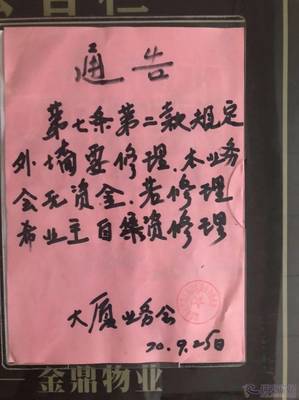 通告
第七条第二款规定
外墙要修理.本业务
会无资金.若修理
希业主自集资修理
大厦业务会
20.9.25日
金鼎物业